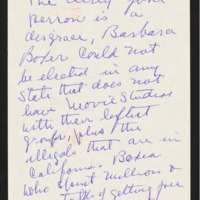 The
person is a
disgrace, Barbara
Boxer could not
be elected in any
State that does not
have Movie Studios
with their leftist
groups, plus the
illegals that are in
California. Boxer
who spent millions &
talks of getting